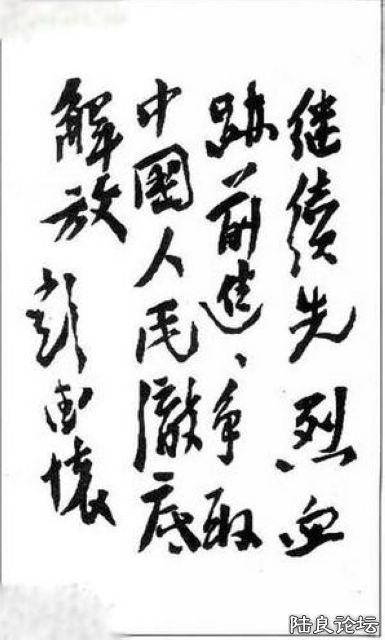 继续先烈血
跡前進、争取
中國人民澈底
解放 彭德懷
陆良论坛